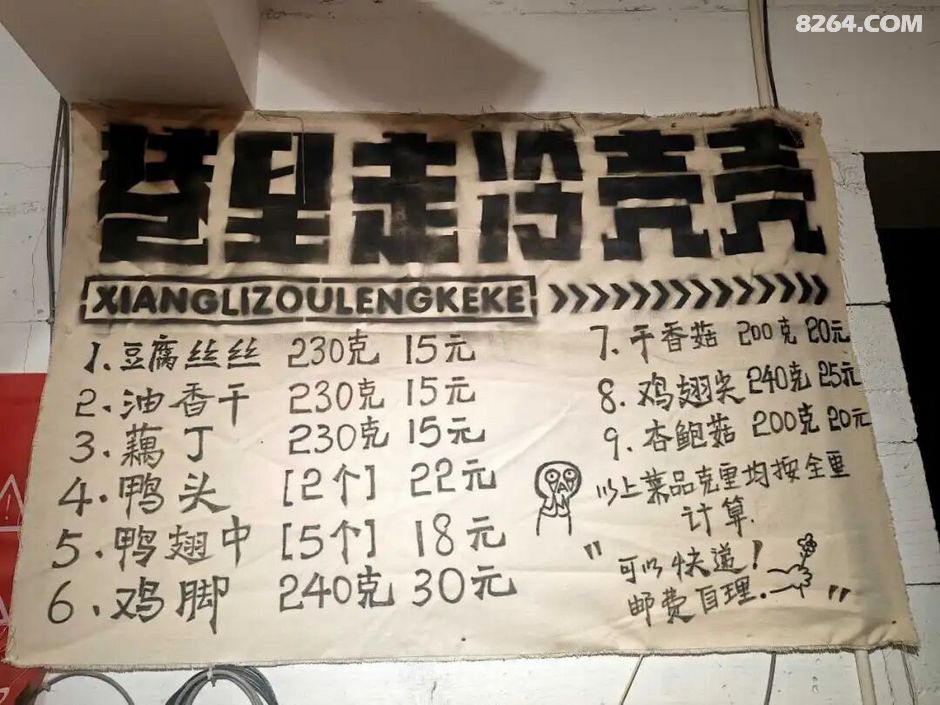 8264.COM
巷里走冷壳壳
XIANGLIZOULENGKEKE
1.豆腐丝丝 230克 15元
2.油香干 230克 15元
3.藕丁 230克 15元
4.鸭头 [2个] 22元
5.鸭翅中 [5个] 18元
6.鸡脚 240克 30元
7.干香菇 200克 20元
8.鸡翅尖 240克 25元
9.杏鲍菇 200克 20元
以上菜品克重均按全重
计算.
"可以快递!
邮费自理."